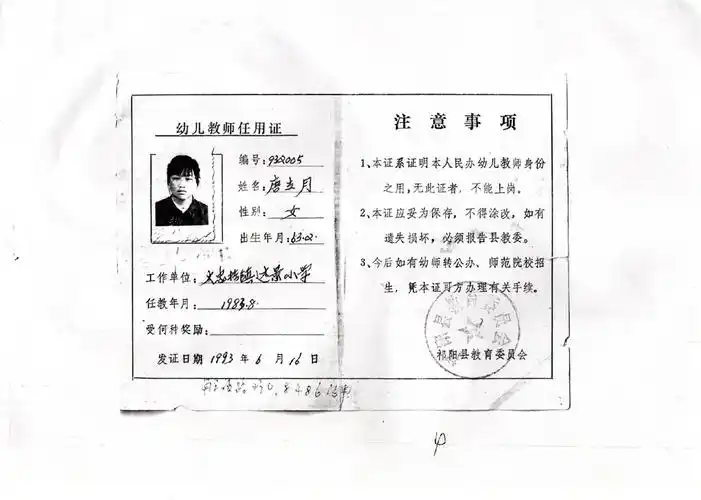 幼儿教师任用证
编号：932005
姓名：唐立月
性别：女
出生年月：63.02.
工作单位：文忠桥镇达景小学
任教年月：1983.8.
受何种奖励：
发证日期 1993 年 6 月 16 日
注意事项
1、本证系证明本人民办幼儿教师身份
之用，无此证者，不能上岗。
2、本证应妥为保存，不得涂改，如有
遗失损坏，必须报告县教委。
3、今后如有幼师转公办、师范院校招
生，凭本证可方办理有关手续。
祁阳县教育委员会